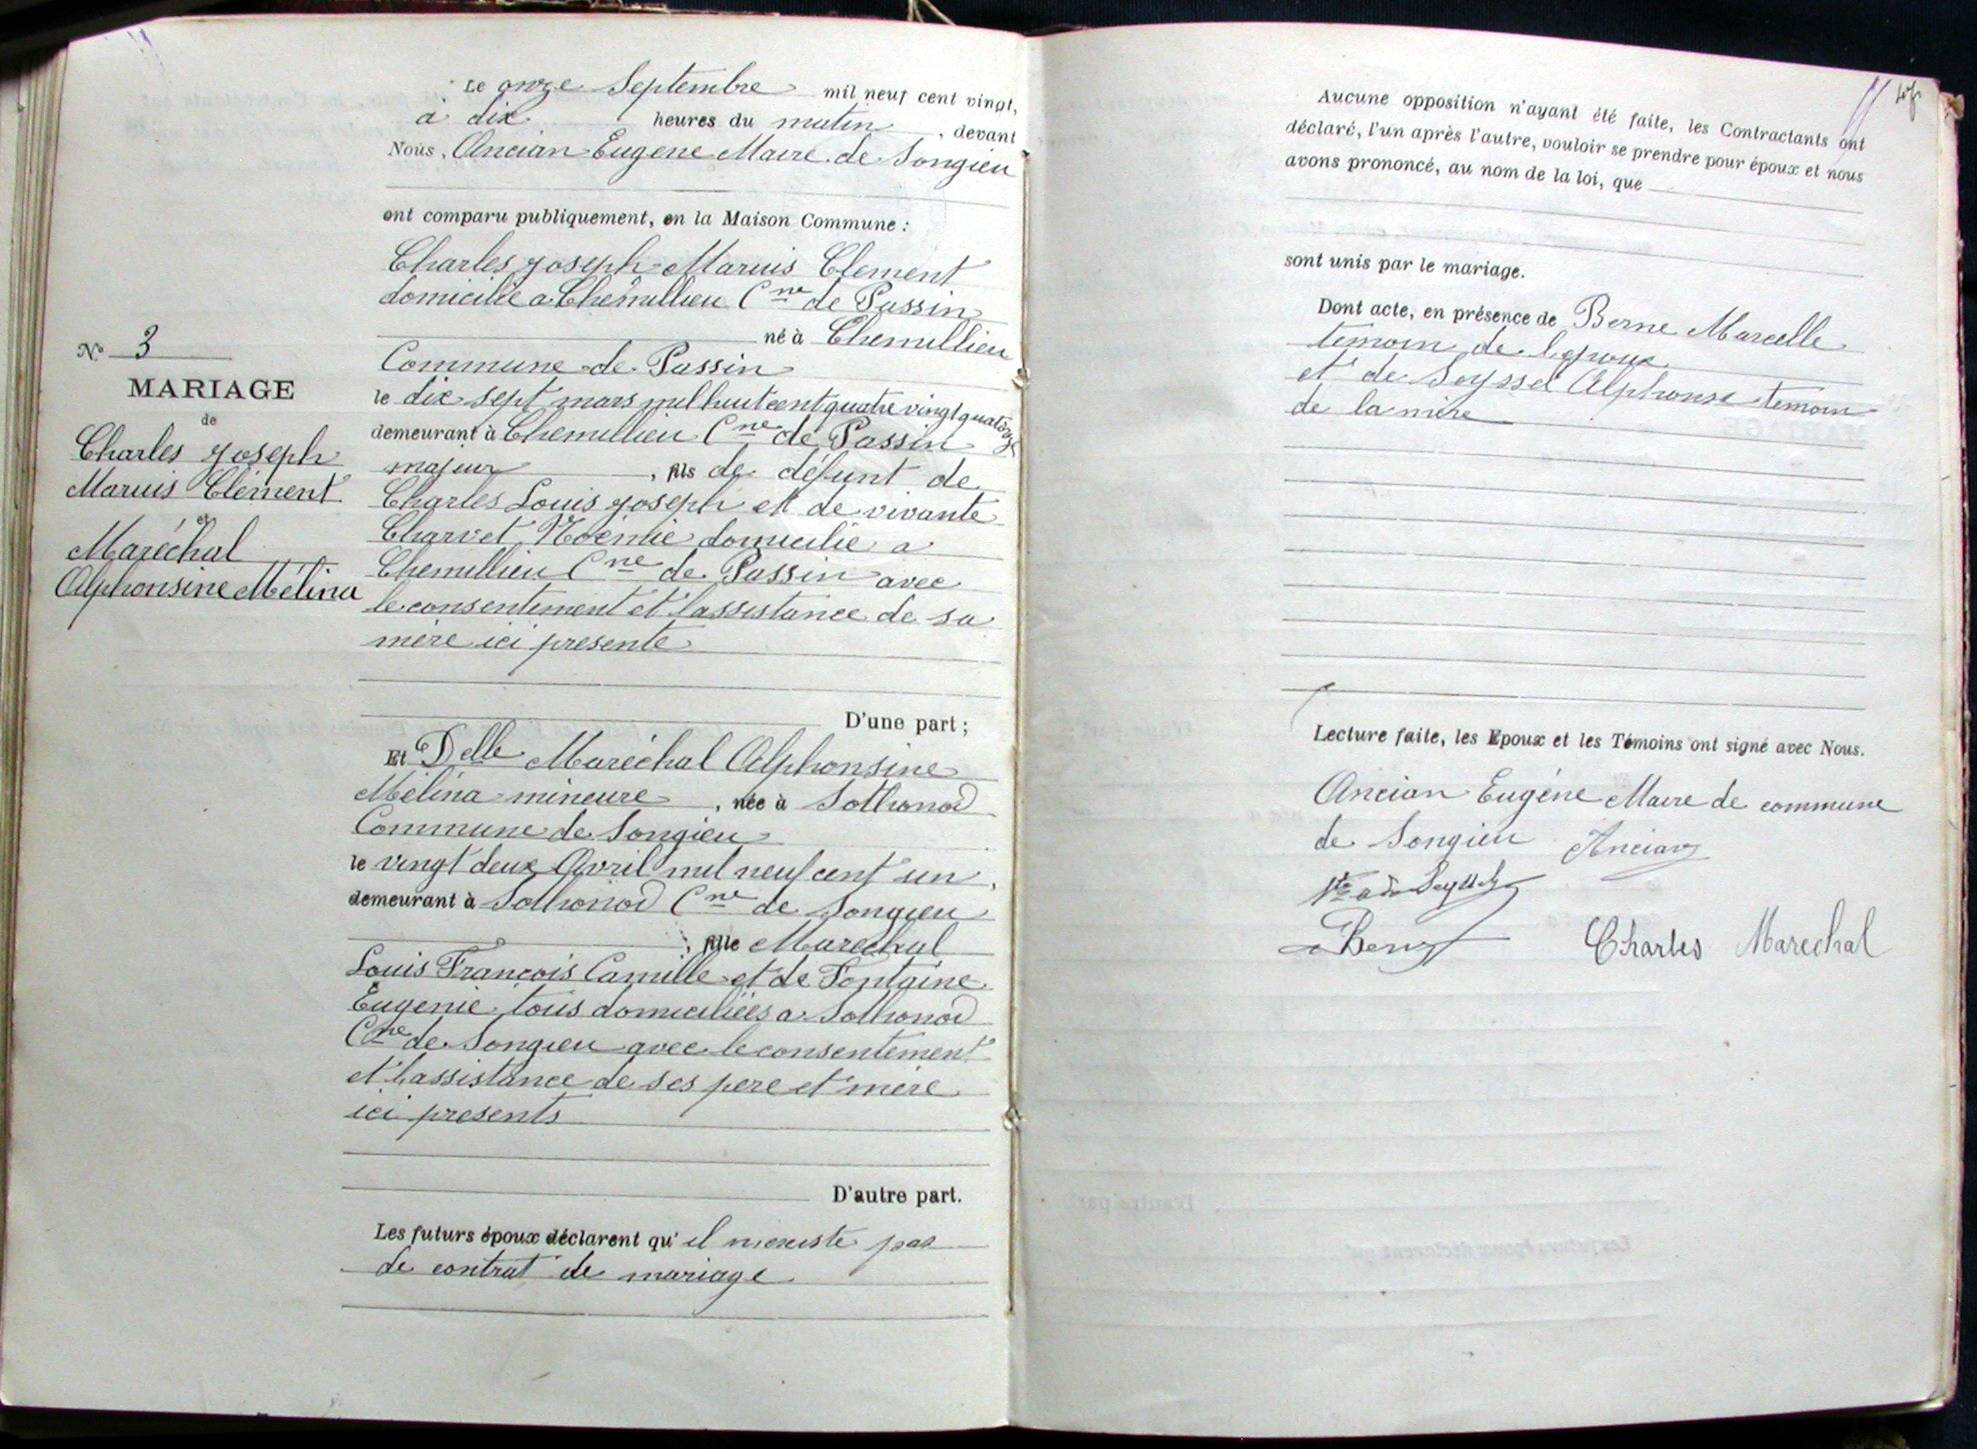 Le onze Septembre mil neuf cent vingt,
à dix heures du matin, devant
Nous, Ancian Eugène Maire de Songieu
ont comparu publiquement, en la Maison Commune :
Charles Joseph Marius Clement
domicilie a Chemillieu Cne de Passin
né à Chemillieu
Commune de Passin
le dix sept mars mil huit cent quatre vingt quatorze
demeurant à Chemillieu Cne de Passin
majeur, fils de défunt de
Charles Louis Joseph et de vivante
Charvet Noémie domicilié a
Chemillieu Cne de Passin avec
le consentement et l'assistance de sa
mère ici presente
D'une part ;
No 3
MARIAGE
de
Charles Joseph
Marius Clément
et
Maréchal
Alphonsine Mélina
Et Delle Maréchal Alphonsine
Mélina mineure, née à Sothonod
Commune de Songieu
le vingt deux Avril mil neuf cent un,
demeurant à Sothonod Cne de Songieu
, fille Marechal
Louis François Camille et de Fontaine
Eugenie tous domiciliées a Sothonod
Cne de Songieu avec le consentement
et l'assistance de ses pere et mère
ici presents
D'autre part.
Les futurs époux déclarent qu'il n'existe pas
de contrat de mariage
Aucune opposition n'ayant été faite, les Contractants ont
déclaré, l'un après l'autre, vouloir se prendre pour époux et nous
avons prononcé, au nom de la loi, que
sont unis par le mariage.
Dont acte, en présence de Berne Marcelle
temoin de l'epoux
et de Seyssel Alphonse temoin
de la mère
Lecture faite, les Epoux et les Témoins ont signé avec Nous.
Ancian Eugéne Maire de commune
de Songieu Ancian
Charles Marechal